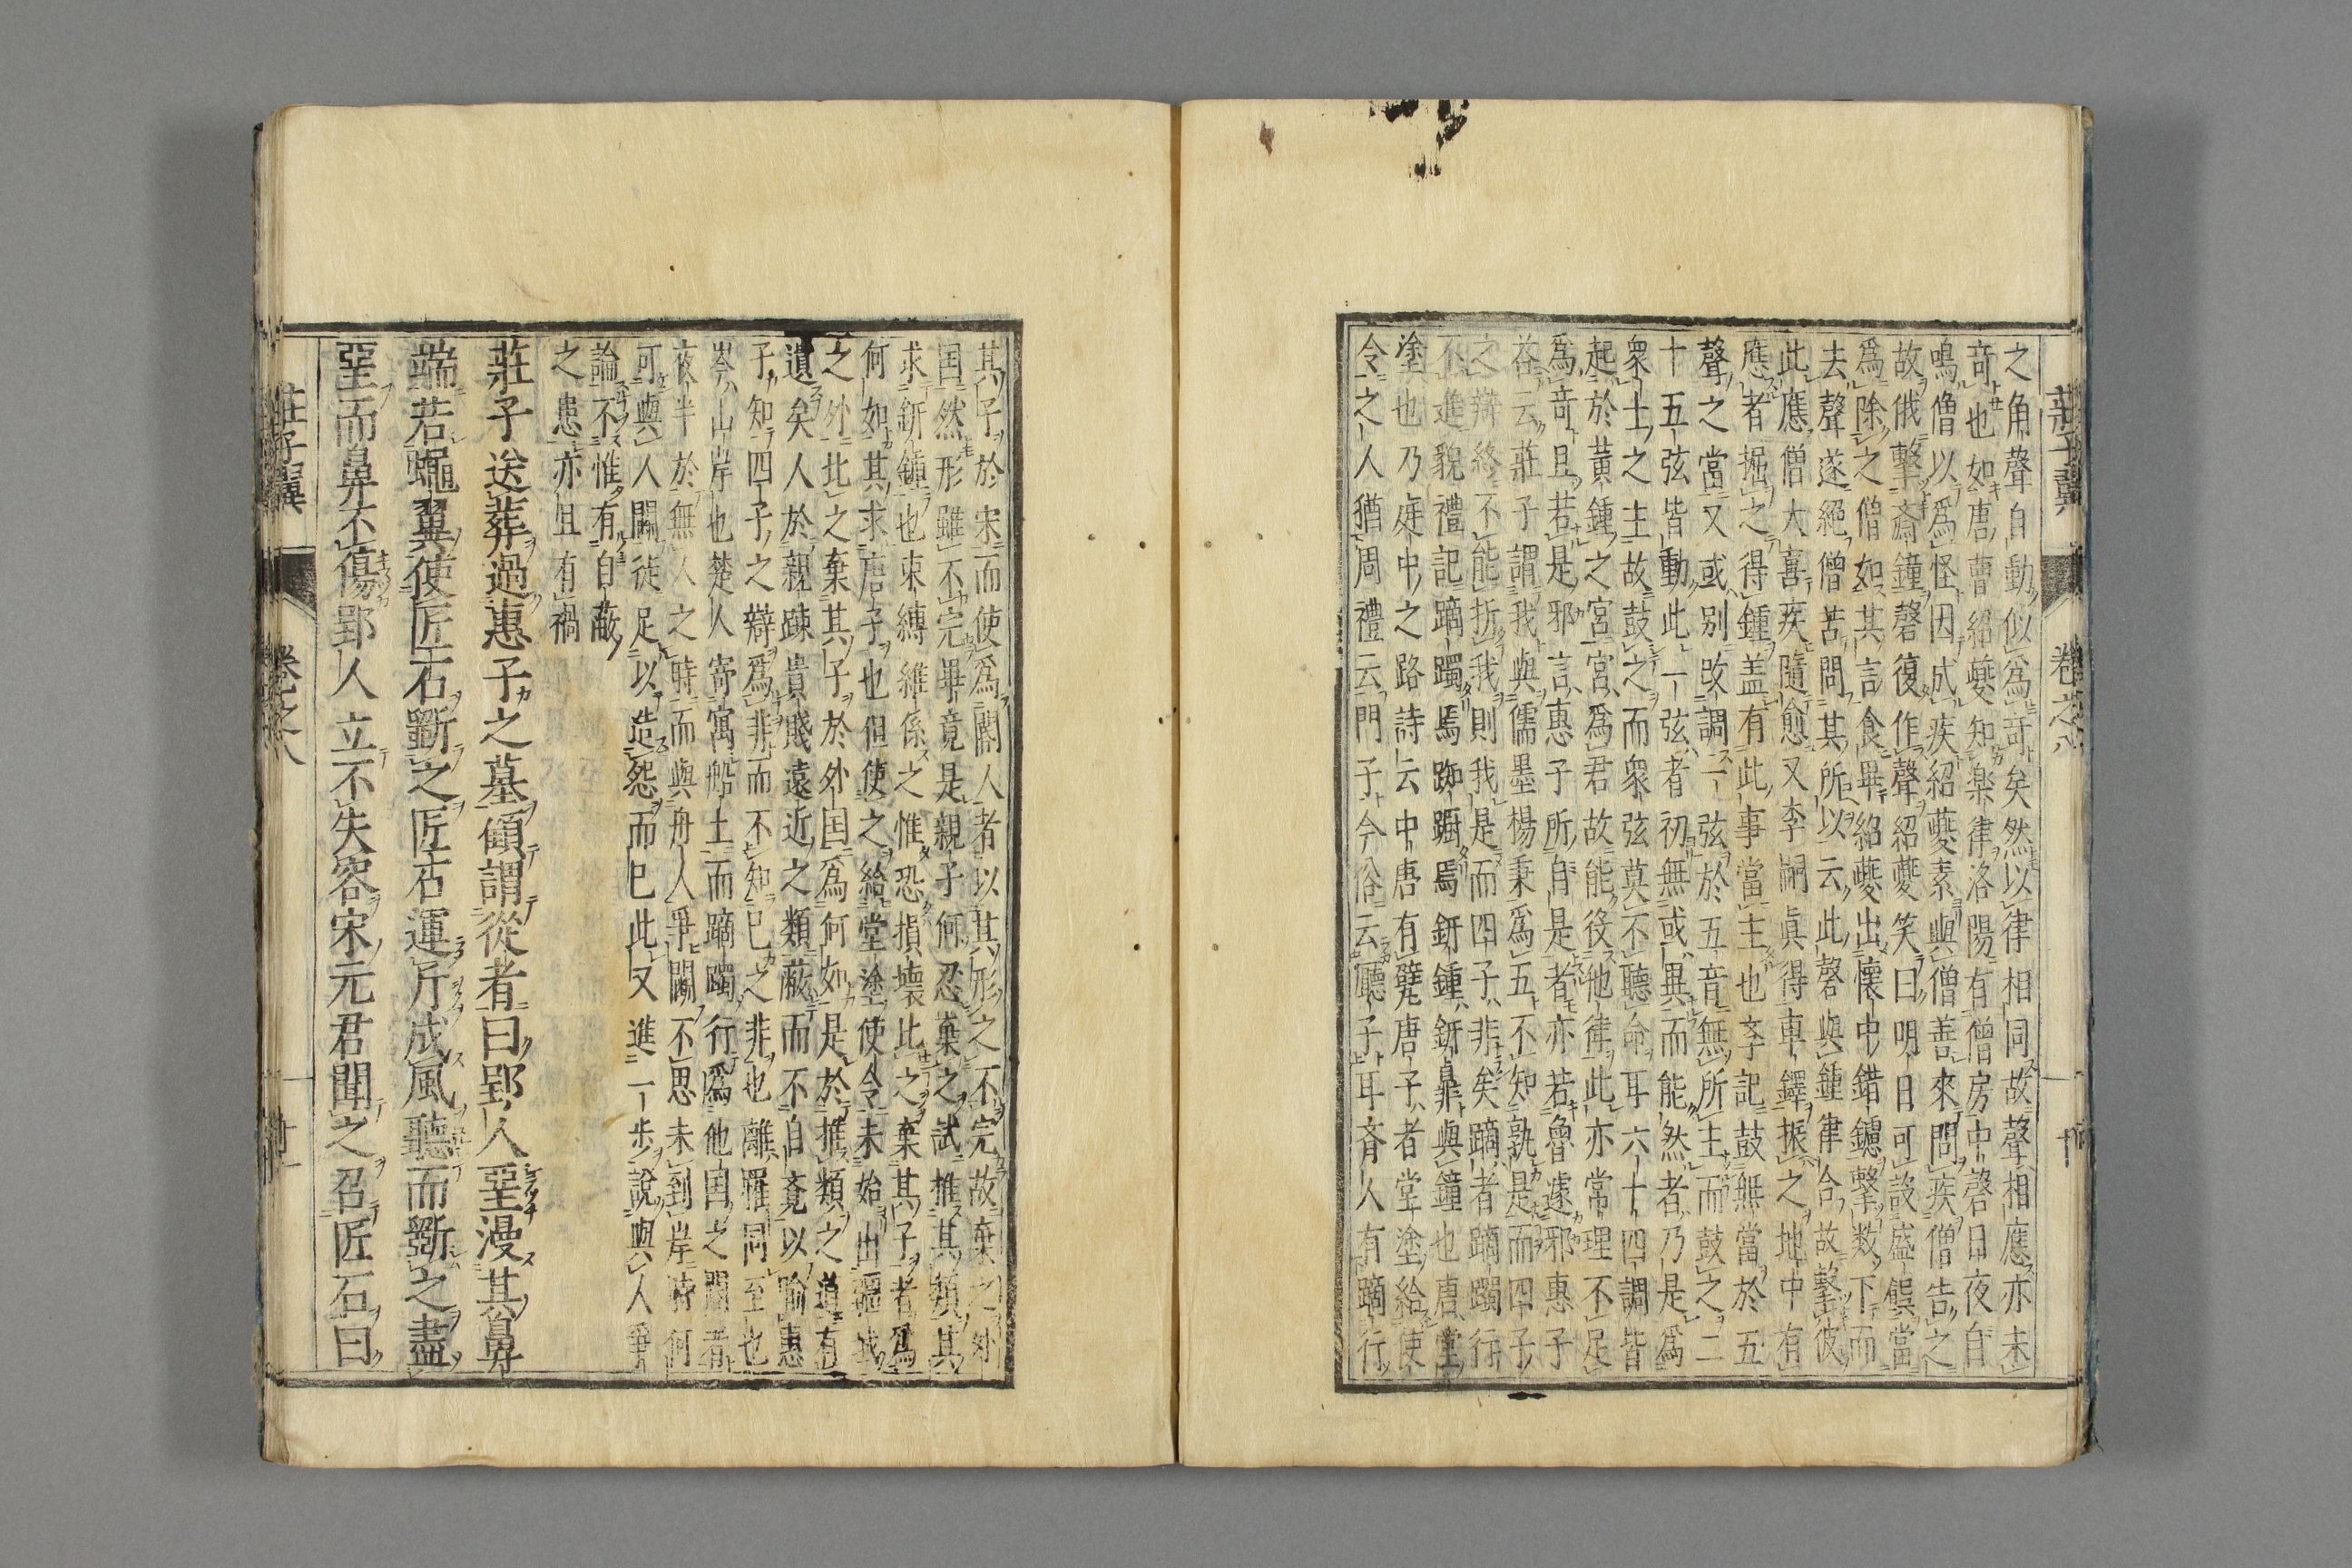 莊子翼 卷之八
之角聲自動似爲竒矣然以律相同故聲相應亦未
竒也如唐曹紹夔知楽律洛陽有僧房中磬日夜自
鳴僧以爲怪因成疾紹夔素與僧善來問疾僧告之
故俄擊斎鐘磬復作聲紹夔笑曰明日可設盛饌當
爲除之僧如其言食畢紹夔出懐中錯鑢擊数下而
去聲遂絕僧苦問其所以云此磬與鍾律合故擊彼
此應僧大喜疾隨愈又李嗣眞得車鐸振之地中有
應者掘之得鍾盖有此事當主也李記鼓無當於五
聲之當又或别改調一弦於五音無所主而鼓之二
十五弦皆動此一弦者初無或異而能然者乃是爲
衆士之主故鼓之而衆弦莫不聽命耳六十四調皆
起於黄鍾之宮宮爲君故能役他律此亦常理不足
爲竒且若是邪言惠子所自是者亦若魯遽邪惠子
荅云莊子謂我與儒墨楊秉爲五不知孰是而四子
之辯終不能折我則我是而四子非矣蹢者蹢躅行
不進貌禮記蹢躅焉踟蹰焉鈃鍾鈃鼎與鐘也唐堂
塗也乃庭中之路詩云中唐有甓唐子者堂塗給使
令之人猶周禮云門子今俗云廳子耳斉人有蹢行
其子於宋而使爲閽人者以其形之不完故棄之外
国然形雖不完畢竟是親子何忍棄之試推其類其
求鈃鐘也束縛維係之惟恐損壊此之棄其子者爲
何如其求唐子也但使之給堂塗使令未始出疆域
之外北之棄其子於外国爲何如是於推類之道有
遺矣人於親踈貴賎遠近之類蔽而不自竟以喻惠
子知四子之辯爲非而不知已之非也離羅同至也
岑山岸也楚人寄寓船土而蹢躅行爲他国之閽者
夜半於無人之時而與舟人爭闘不思未到岸時何
可與人闘徒足以造怨而已此又進一步說與人爭
論不惟有自蔽
之患亦且有禍
莊子送葬過惠子之墓顧謂從者曰郢人堊漫其鼻
端若蠅翼使匠石斲之匠石運斤成風聽而斲之盡
堊而鼻不傷郢人立不失容宋元君聞之召匠石曰
莊子翼 卷之八